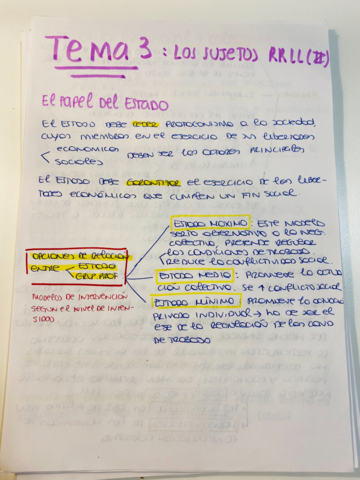 Tema 3: LOS SUJETOS RRLL (II)
El PAPEL DEL ESTADO
EL ESTADO DEBE CEDER PROTAGONISMO A LA SOCIEDAD,
CUYOS MIEMBROS EN EL EJERCICIO DE SUS LIBERTADES
ECONÓMICAS
SOCIALES
DEBEN SER LOS ACTORES PRINCIPALES
EL ESTADO DEBE GARANTIZAR EL EJERCICIO DE LAS LIBER-
TADES ECONÓMICAS QUE CUMPLEN UN FIN SOCIAL
OPCIONES DE RELACIÓN
ENTRE
ESTADO
GRUP. PROF
MODELOS DE INTERVENCIÓN
SEGÚN EL NIVEL DE INTEN-
SIDAD
ESTADO MÁXIMO: ESTE MODELO
SERÍA GUBERNATIVO A LA NEG.
COLECTIVA, PRETENDE REGULAR
LAS CONDICIONES DE TRABAJO
REDUCE LA CONFLICTIVIDAD SOCIAL
ESTADO MEDIO: PROMUEVE LA
COLECTIVA. SE ↑ CONFLICTO SOCIAL
ESTADO MÍNIMO: PROMUEVE LA
PRIVADA INDIVIDUAL → HA DE SER EL
EJE DE LA REGULACIÓN DE LAS COND
DE TRABAJO